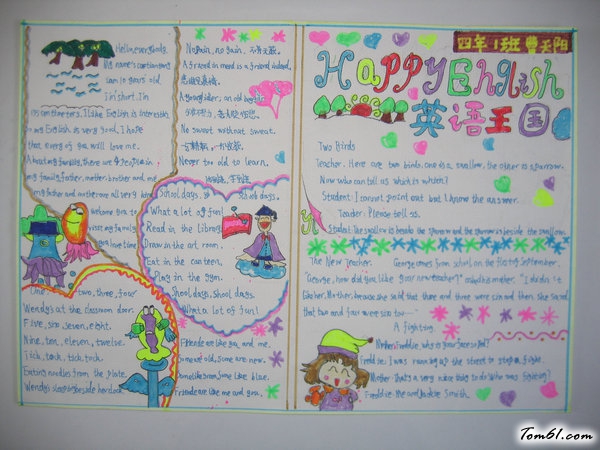 Hello, everybody.
My name's
I am 10 years old.
I'm short. I'm
centimeters. I like English is interestin
so my English is very good. I hope
that every of you will love me.
family, there are people in
my family, father, mother, brother and me.
my father and mother are all very kind
welcome you to
visit my family
you love time
One, two, three, four
Wendy's at the classroom door.
Five, six, seven, eight.
Nine, ten, eleven, twelve.
Tick, tock, tick, tock.
Eating noodles from the plate.
Wendy's
No pain, no gain. 不劳无获.
A friend in need is a friend indeed.
患难见真情.
A young idler, an old beggar
少壮不努力,老大徒伤悲.
No sweat without sweat.
Never too old to learn.
School days, school days.
What a lot of fun!
Read in the Library
Draw in the art room.
Eat in the canteen,
Play in the gym.
School days, school days.
What a lot of fun!
Friends are like you and me.
Some are old, some are new.
Some like some, some like blue.
Friends are like me and you.
四年1班 曹天阳
Happy English
英语王国
Two Birds
Teacher: Here are two birds, one is a swallow, the other is sparrow.
Now who can tell us which is which?
Student: I cannot point out but I know the answer.
Teacher: Please tell us.
Student: The swallow is beside the sparrow and the sparrow is beside the swallow.
The New Teacher
George comes from school on the first of September.
"George, how did you like your new teacher?" asked his mother. "I didn't
like her, Mother, because she said that three and three were six and then she said
that two and four were six too—"
A fighting.
Mother: Freddie, why is your face so red?
Freddie: I was running up the street to stop a fight.
Mother: That's a very nice thing to do. Who was fighting?
Freddie: Me and Jackie Smith.
Tom61.com